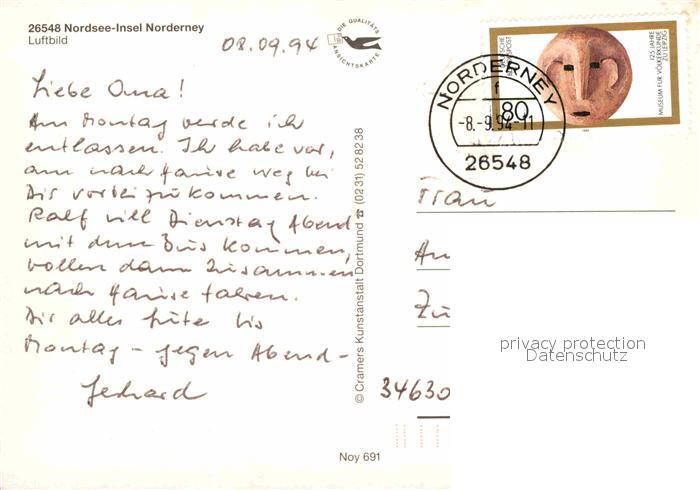 26548 Nordsee-Insel Norderney
Luftbild
08.09.94
DIE QUALITÄTS
ANSICHTSKARTE
Liebe Oma!
Am Montag werde ich
entlassen. Ihr habe vor,
am nach Hause weg bei
Dir vorbeizukommen.
Ralf will Dienstag Abend
mit dem Bus kommen,
wollen dann zusammen
nach Hause fahren.
Dir alles gute bis
Montag – gegen Abend –
Gerhard
© Cramers Kunstanstalt Dortmund ☎ (0231) 52 82 38
DEUTSCHE
BUNDESPOST
80
125 JAHRE
MUSEUM FÜR VÖLKERKUNDE
ZU LEIPZIG
NORDERNEY
f
-8.-9.94-11
26548
Frau
An
Zu
34630
privacy protection
Datenschutz
Noy 691